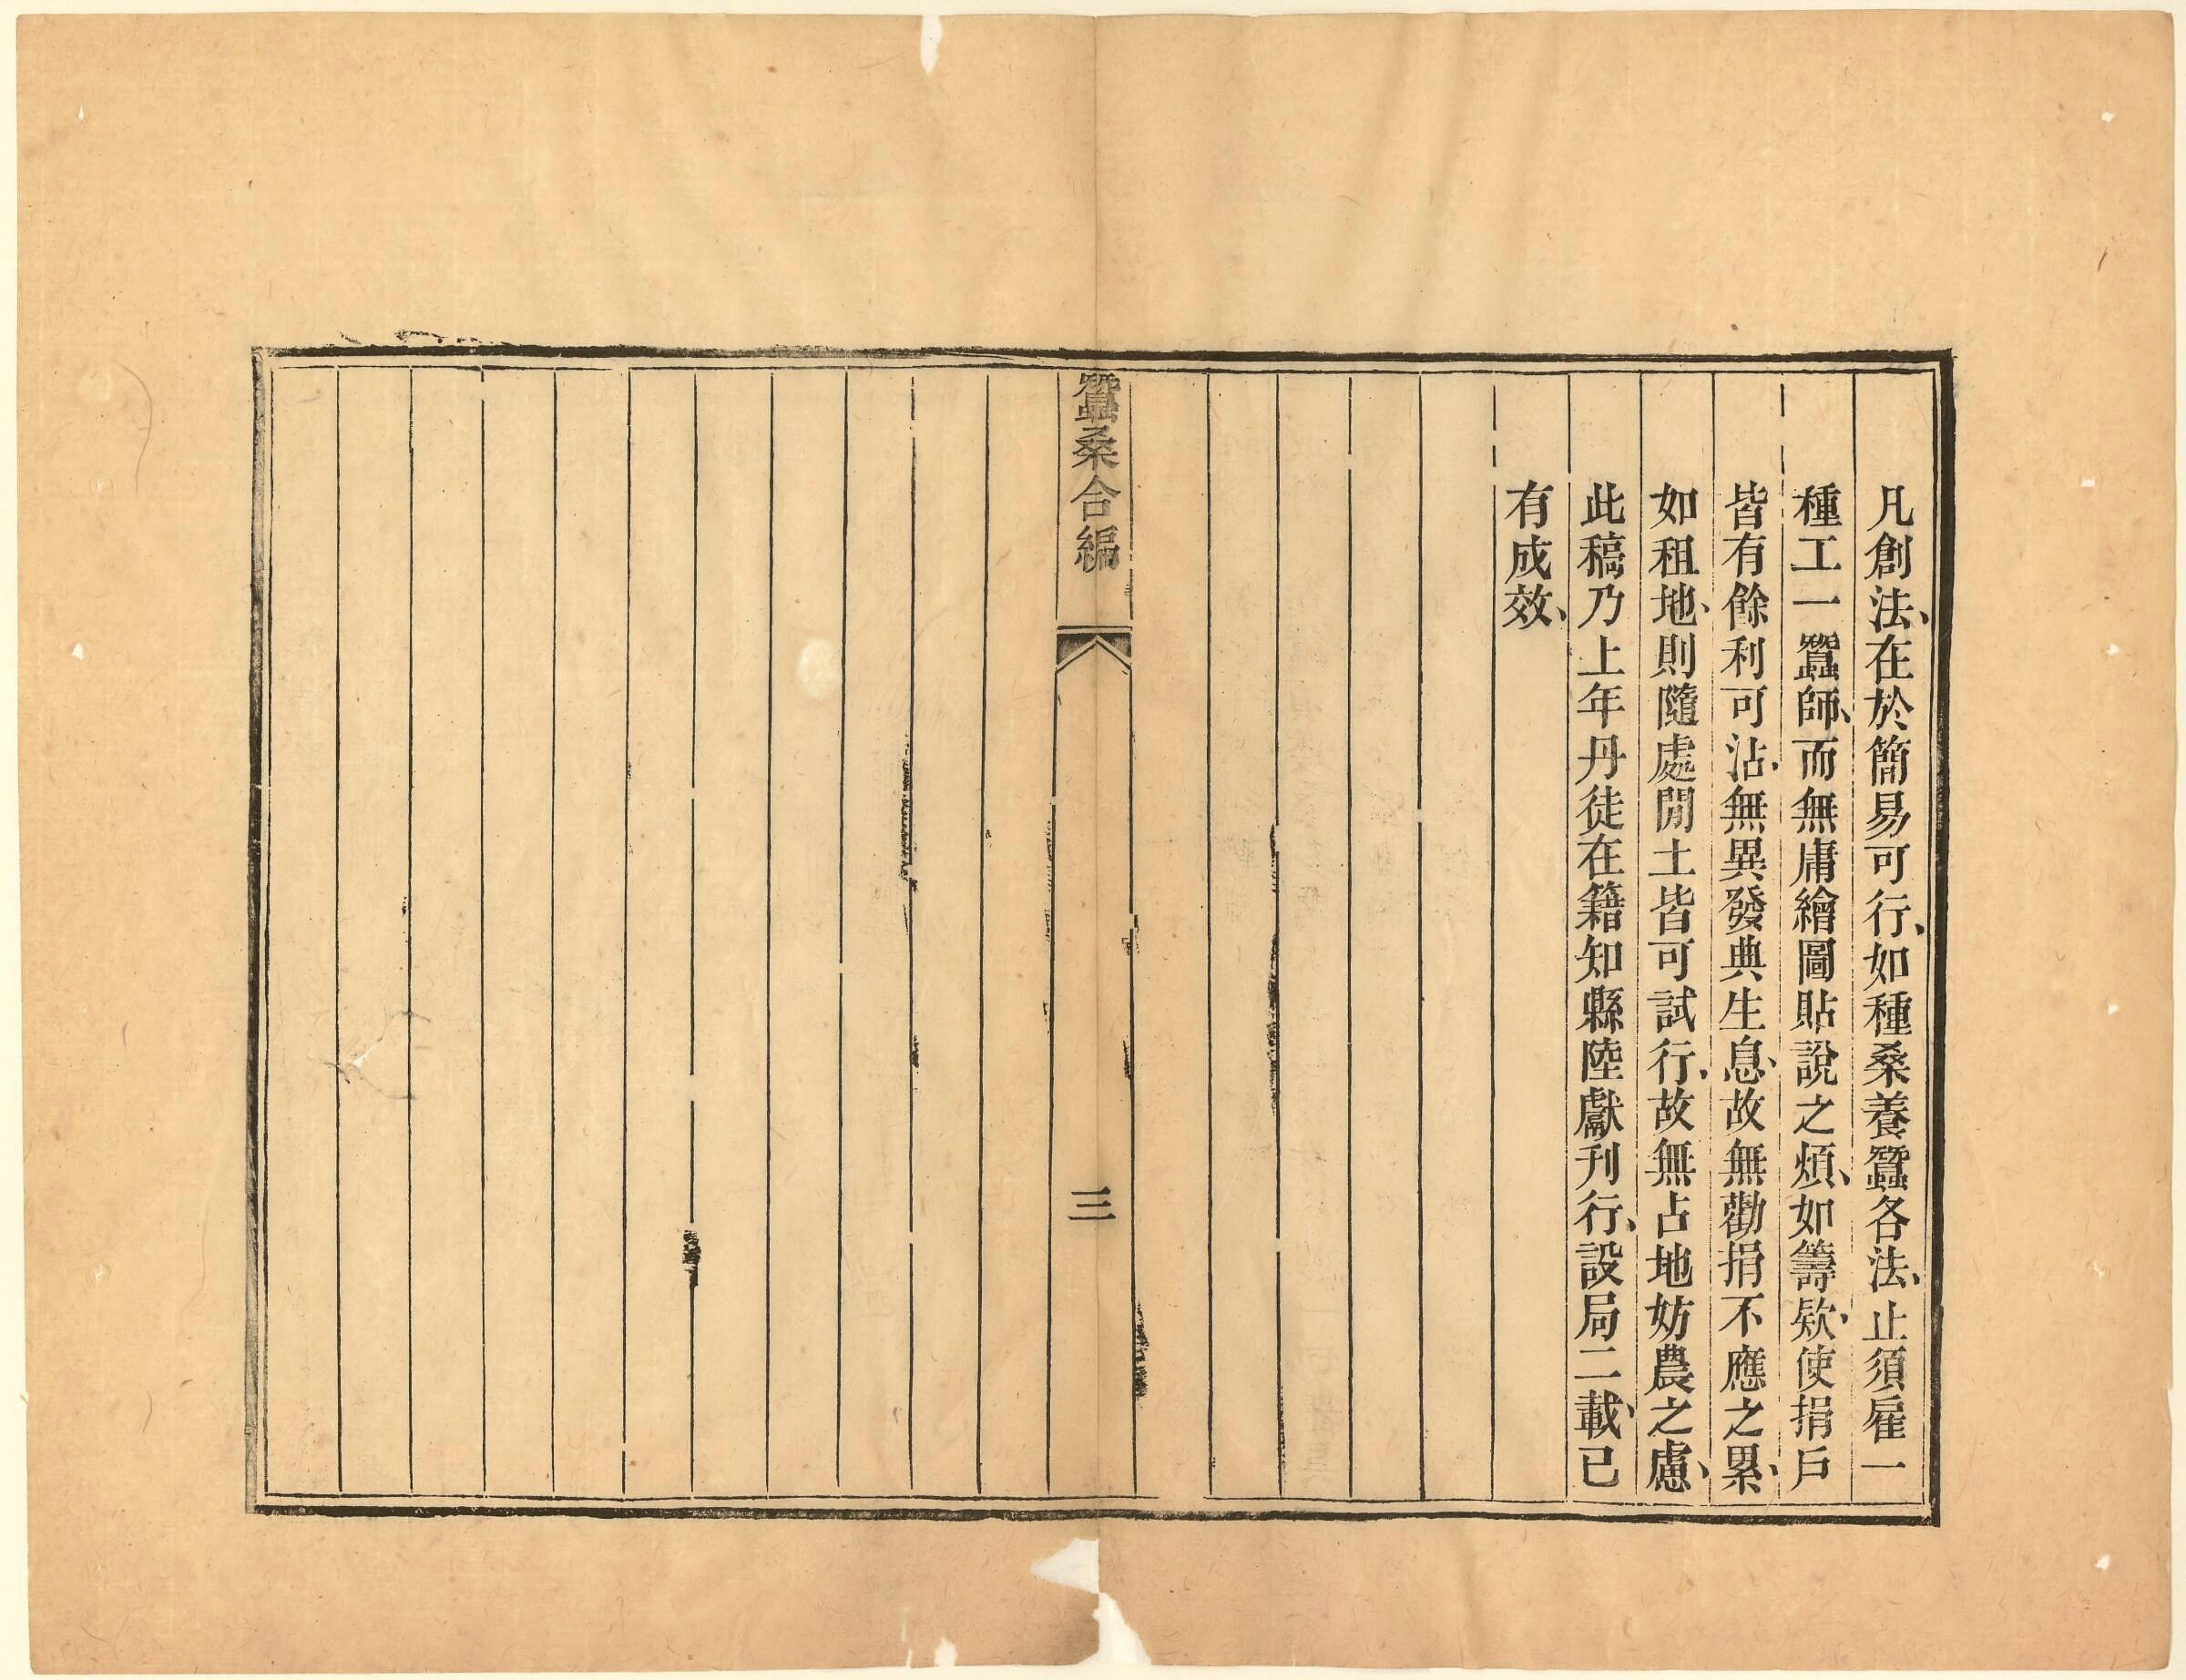 凡創法、在於簡易可行、如種桑養蠶各法、止須雇一
種工一蠶師、而無庸繪圖貼說之煩、如籌欵、使捐戶
皆有餘利可沾、無異發典生息、故無勸捐不應之累、
如租地、則隨處閒土皆可試行、故無占地妨農之慮、
此稿乃上年丹徒在籍知縣陸獻刊行、設局二載、已
有成效、
蠶桑合編
三